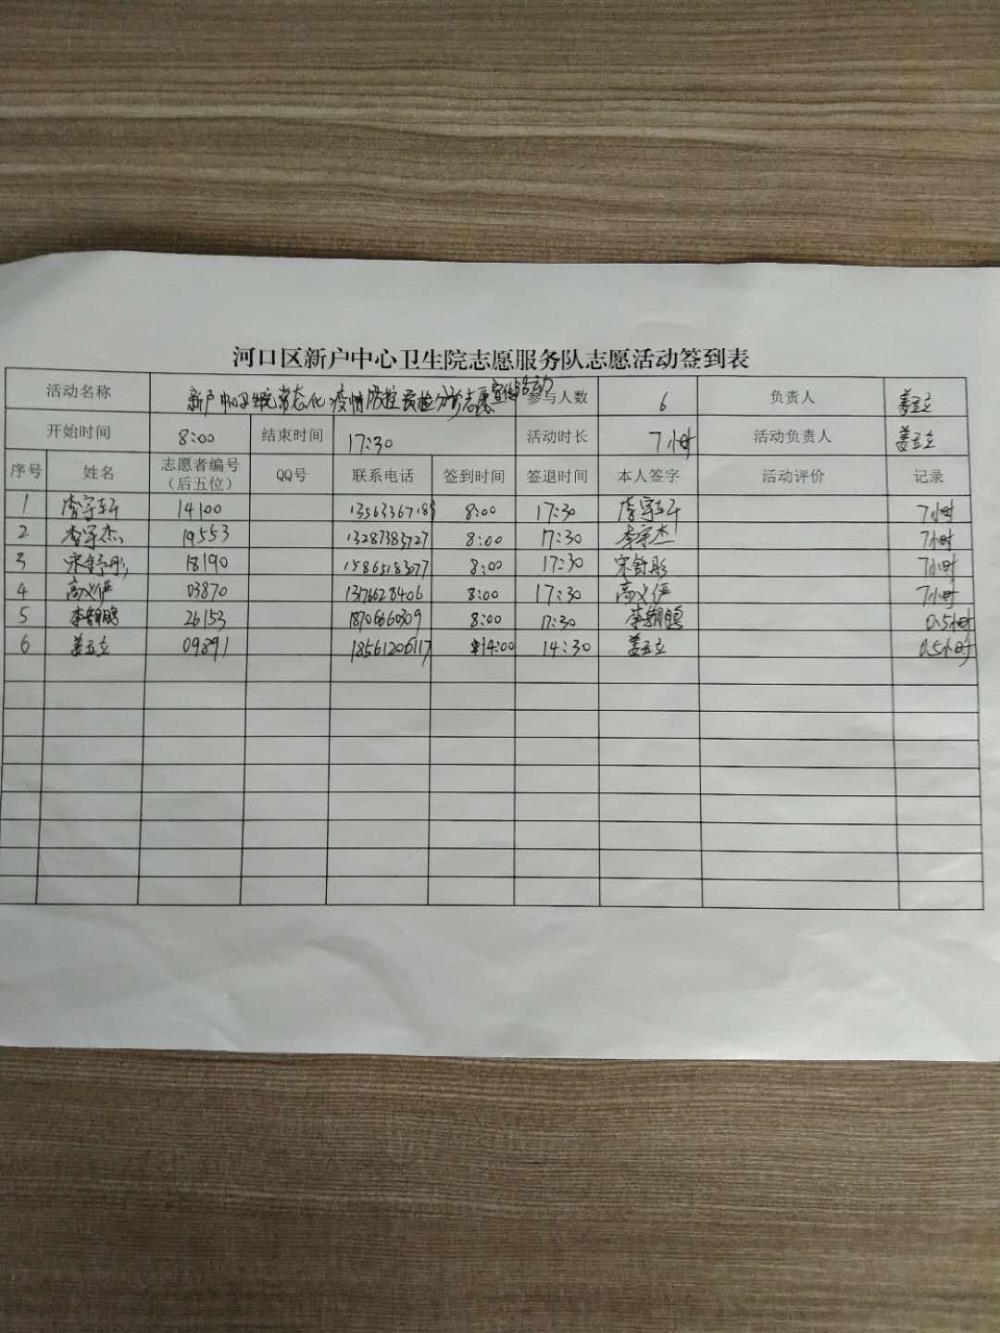 河口区新户中心卫生院志愿服务队志愿活动签到表
活动名称 新户中心卫生院常态化疫情防控预检分诊志愿宣传活动 参与人数 6 负责人 姜立立
开始时间 8:00 结束时间 17:30 活动时长 7小时 活动负责人 姜立立
序号 姓名 志愿者编号（后五位） QQ号 联系电话 签到时间 签退时间 本人签字 活动评价 记录
1 14100 8:00 17:30 7小时
2 李宇杰 19553 13287383727 8:00 17:30 李宇杰 7小时
3 18190 15865183077 8:00 17:30 7小时
4 高义俨 03870 8:00 17:30 高义俨 7小时
5 李翱鹏 26153 8:00 17:30 李翱鹏 0.5小时
6 姜立立 09891 18561206117 14:00 14:30 姜立立 0.5小时